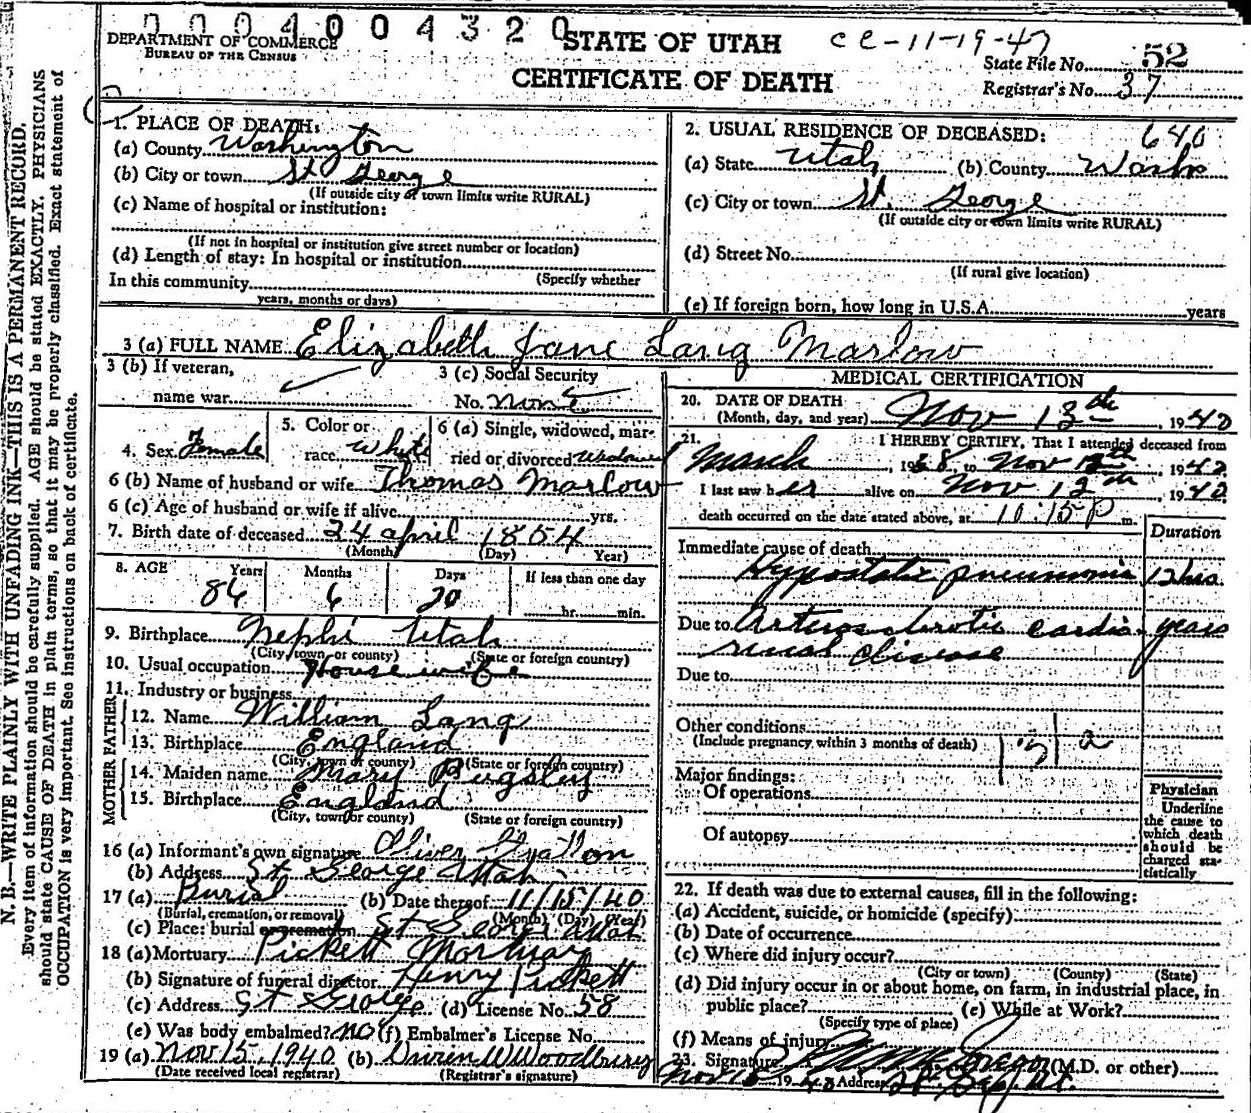 0004004320
DEPARTMENT OF COMMERCE
BUREAU OF THE CENSUS
STATE OF UTAH
CERTIFICATE OF DEATH
ce-11-19-47
State File No. 52
Registrar's No. 37
N. B.—WRITE PLAINLY WITH UNFADING INK—THIS IS A PERMANENT RECORD.
Every item of information should be carefully supplied. AGE should be stated EXACTLY. PHYSICIANS
should state CAUSE OF DEATH in plain terms, so that it may be properly classified. Exact statement of
OCCUPATION is very important. See instructions on back of certificate.
1. PLACE OF DEATH:
(a) County Washington
(b) City or town St George
(If outside city or town limits write RURAL)
(c) Name of hospital or institution:
(If not in hospital or institution give street number or location)
(d) Length of stay: In hospital or institution
(Specify whether
In this community
years, months or days)
2. USUAL RESIDENCE OF DECEASED: 640
(a) State Utah (b) County Wash
(c) City or town St. George
(If outside city or town limits write RURAL)
(d) Street No.
(If rural give location)
(e) If foreign born, how long in U.S.A. years
3 (a) FULL NAME Elizabeth Jane Lang Marlow
3 (b) If veteran,
name war
3 (c) Social Security
No. None
4. Sex Female
5. Color or
race White
6 (a) Single, widowed, mar-
ried or divorced Widowed
6 (b) Name of husband or wife Thomas Marlow
6 (c) Age of husband or wife if alive yrs.
7. Birth date of deceased 24 April 1854
(Month) (Day) Year)
8. AGE Years Months Days If less than one day
86 6 20 hr. min.
9. Birthplace Nephi Utah
(City, town or county) (State or foreign country)
10. Usual occupation Housewife
11. Industry or business
FATHER
12. Name William Lang
13. Birthplace England
(City, town or county) (State or foreign country)
MOTHER
14. Maiden name Mary Pugsley
15. Birthplace England
(City, town or county) (State or foreign country)
16 (a) Informant's own signature Oliver
(b) Address St George Utah
17 (a) Burial (b) Date thereof 11/15/40
(Burial, cremation, or removal) (Month) (Day) (Year)
(c) Place: burial or cremation St George Utah
18 (a) Mortuary Pickett Mortuary
(b) Signature of funeral director Henry Pickett
(c) Address St George (d) License No. 58
(e) Was body embalmed? no (f) Embalmer's License No.
19 (a) Nov 15, 1940 (b) Woodbury
(Date received local registrar) (Registrar's signature)
MEDICAL CERTIFICATION
20. DATE OF DEATH
(Month, day, and year) Nov 13th, 1940
21. I HEREBY CERTIFY, That I attended deceased from
March, 1938, to Nov 13th 1940
I last saw her alive on Nov 12th, 1940
death occurred on the date stated above, at 11:15 P m.
Duration
Immediate cause of death
Hypostatic pneumonia 12 hrs.
Due to Arteriosclerotic cardio- years
renal disease
Due to
Other conditions
(Include pregnancy within 3 months of death) 131a
Major findings:
Of operations
Of autopsy
Physician
Underline
the cause to
which death
should be
charged sta-
tistically
22. If death was due to external causes, fill in the following:
(a) Accident, suicide, or homicide (specify)
(b) Date of occurrence
(c) Where did injury occur?
(City or town) (County) (State)
(d) Did injury occur in or about home, on farm, in industrial place, in
public place? (e) While at Work?
(Specify type of place)
(f) Means of injury
23. Signature (M.D. or other)
Nov 19 Address